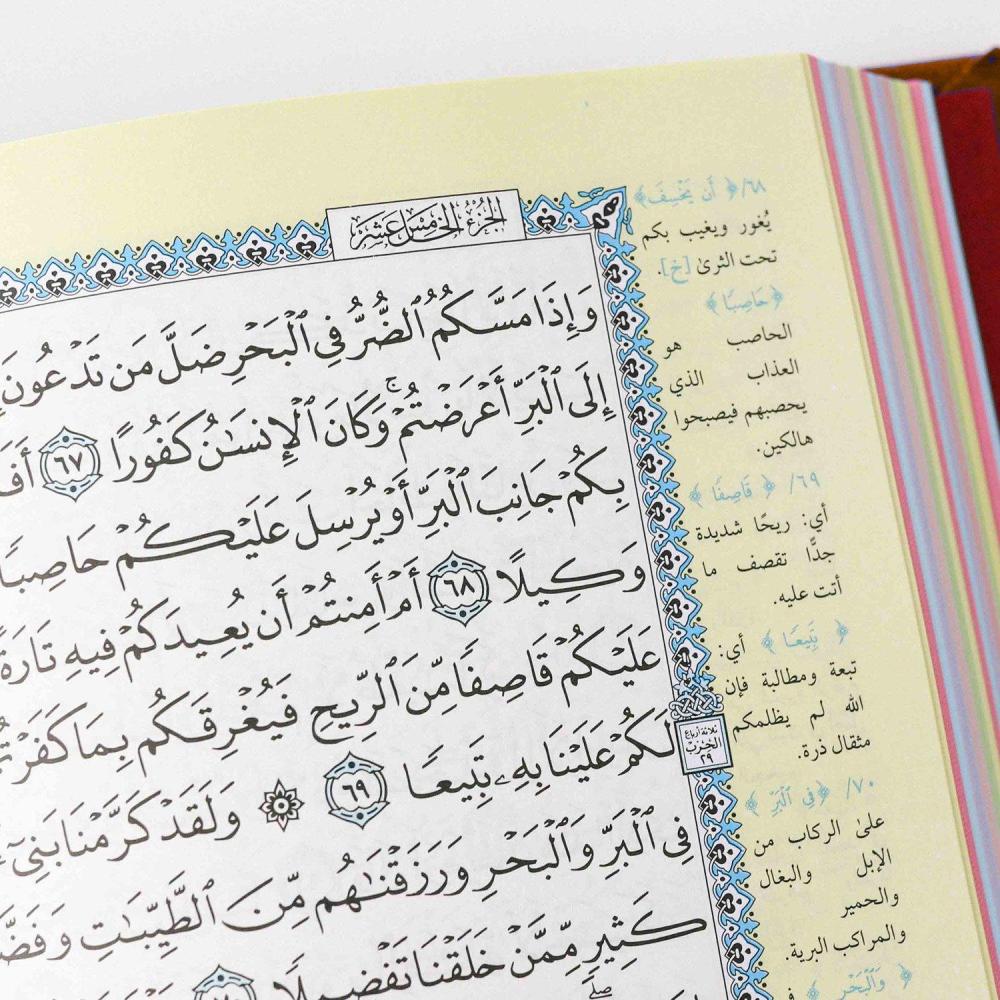 الجُزْءُ الخَامِسَ عَشَرَ
وَإِذَا مَسَّكُمُ ٱلضُّرُّ فِي ٱلْبَحْرِ ضَلَّ مَن تَدْعُونَ
إِلَى ٱلْبَرِّ أَعْرَضْتُمْ ۚ وَكَانَ ٱلْإِنسَٰنُ كَفُورًا ٦٧
بِكُمْ جَانِبَ ٱلْبَرِّ أَوْ يُرْسِلَ عَلَيْكُمْ حَاصِبًا
وَكِيلًا ٦٨ أَمْ أَمِنتُمْ أَن يُعِيدَكُمْ فِيهِ تَارَةً
عَلَيْكُمْ قَاصِفًا مِّنَ ٱلرِّيحِ فَيُغْرِقَكُم بِمَا كَفَرْتُمْ
لَكُمْ عَلَيْنَا بِهِۦ تَبِيعًا ٦٩ ۞ وَلَقَدْ كَرَّمْنَا بَنِيٓ
فِي ٱلْبَرِّ وَٱلْبَحْرِ وَرَزَقْنَٰهُم مِّنَ ٱلطَّيِّبَٰتِ
كَثِيرٍ مِّمَّنْ خَلَقْنَا تَفْضِيلًا ٧٠
ثلاثة أرباع
الحزب
٢٩
٦٨/ ﴿أَن يَخْسِفَ﴾
يُغور ويغيب بكم
تحت الثرىٰ [خ].
﴿حَاصِبًا﴾
الحاصب هو
العذاب الذي
يحصبهم فيصبحوا
هالكين.
٦٩/ ﴿قَاصِفًا﴾
أي: ريحًا شديدة
جدًّا تقصف ما
أتت عليه.
﴿تَبِيعًا﴾ أي:
تبعة ومطالبة فإن
الله لم يظلمكم
مثقال ذرة.
٧٠/ ﴿فِي ٱلْبَرِّ﴾
علىٰ الركاب من
الإبل والبغال
والحمير
والمراكب البرية.
﴿وَٱلْبَحْرِ﴾ في